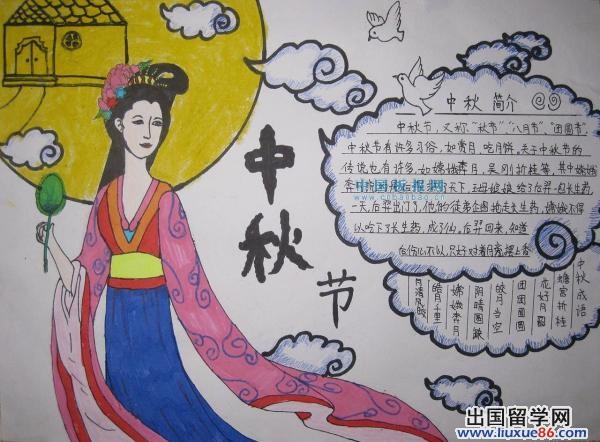 中秋节
中秋 简介
中秋节,又称"秋节""八月节""团圆节"。
中秋节有许多习俗,如赏月、吃月饼,关于中秋节的
传说也有许多,如嫦娥奔月,吴刚折桂等,其中嫦娥
奔月 天下,王母娘娘给了后羿一包长生药
一天,后羿出门了,他的徒弟企图抢走长生药,嫦娥不得
以吃下了长生药,成了仙,后羿回来,知道
后伤心不以,只好对着月亮摆上香
中秋成语
蟾宫折桂
花好月圆
团团圆圆
皓月当空
阴晴圆缺
嫦娥奔月
皓月千里
中国板报网
www.cnbanbao.cn
出国留学网
www.liuxue86.com